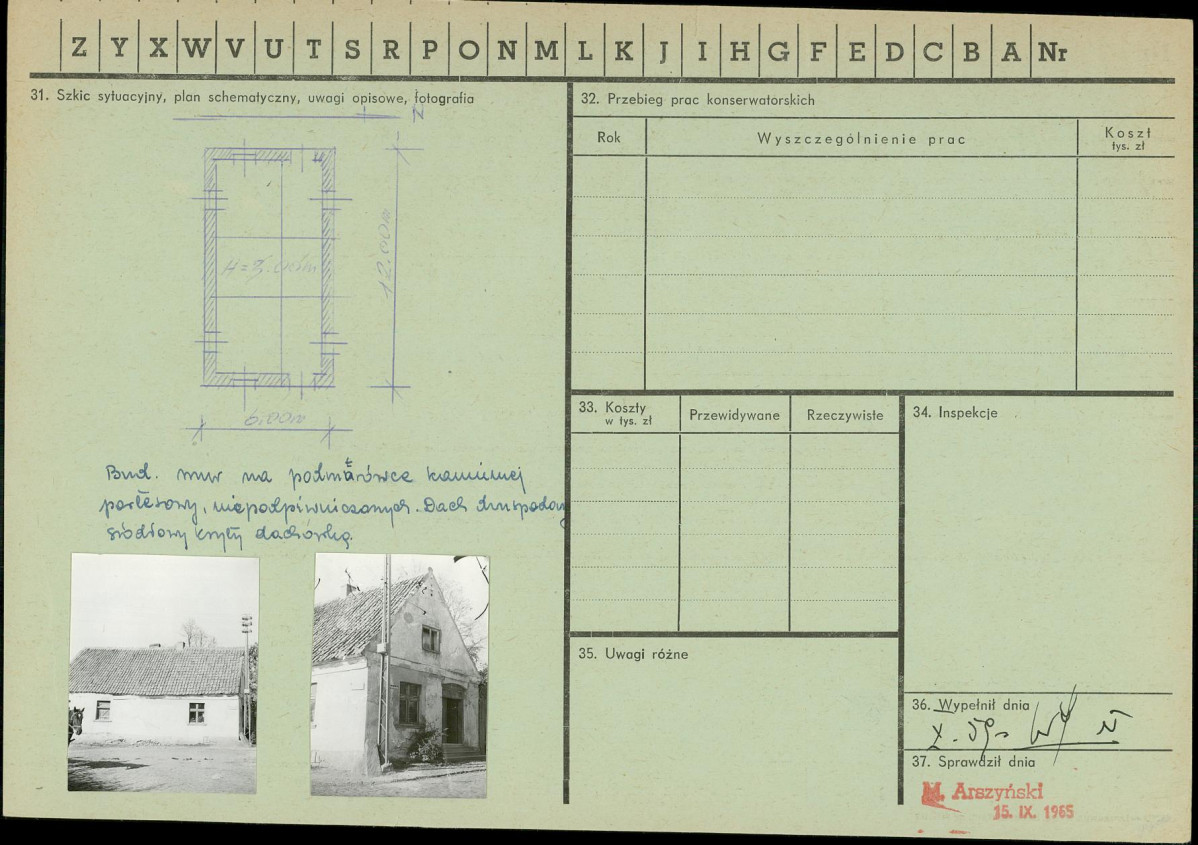 Z Y X W V U T S R P O N M L K J I H G F E D C B A Nr
31. Szkic sytuacyjny, plan schematyczny, uwagi opisowe, fotografia
N
12.00m
6.00m
Bud. mur na podmurówce kamiennej
parterowy, niepodpiwniczonych. Dach dwuspadowy
siodłowy kryty dachówką.
32. Przebieg prac konserwatorskich
Rok Wyszczególnienie prac Koszt
tys. zł
33. Koszty
w tys. zł
Przewidywane Rzeczywiste
34. Inspekcje
35. Uwagi różne
36. Wypełnił dnia
X. 59
37. Sprawdził dnia
M. Arszyński
15. IX. 1965